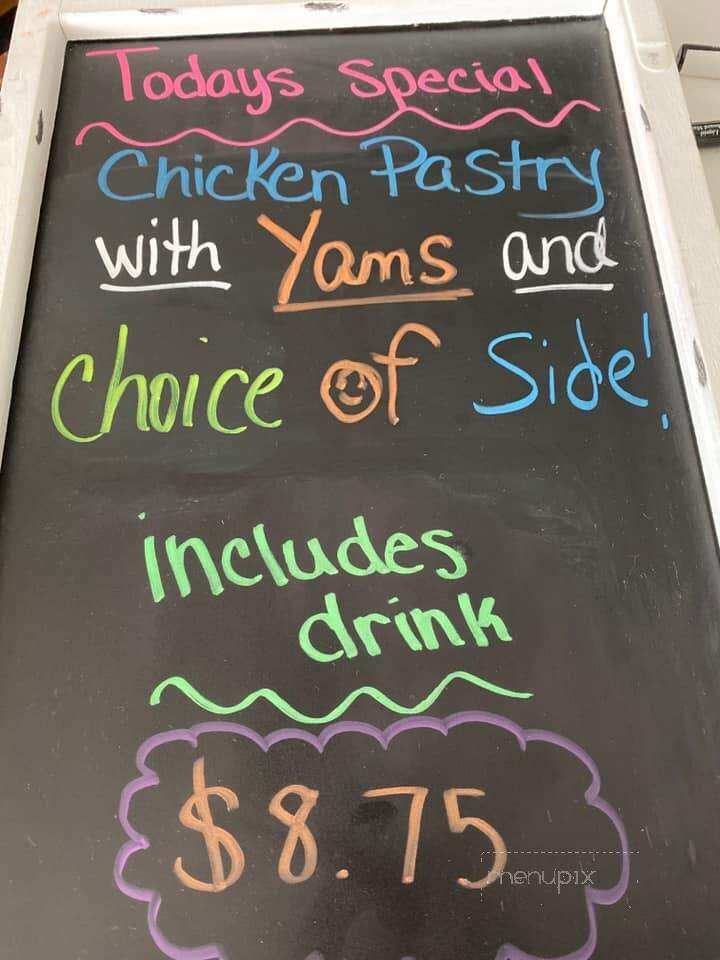 Todays Special
Chicken Pastry
with Yams and
choice of Side!
includes
drink
$8.75
menupix